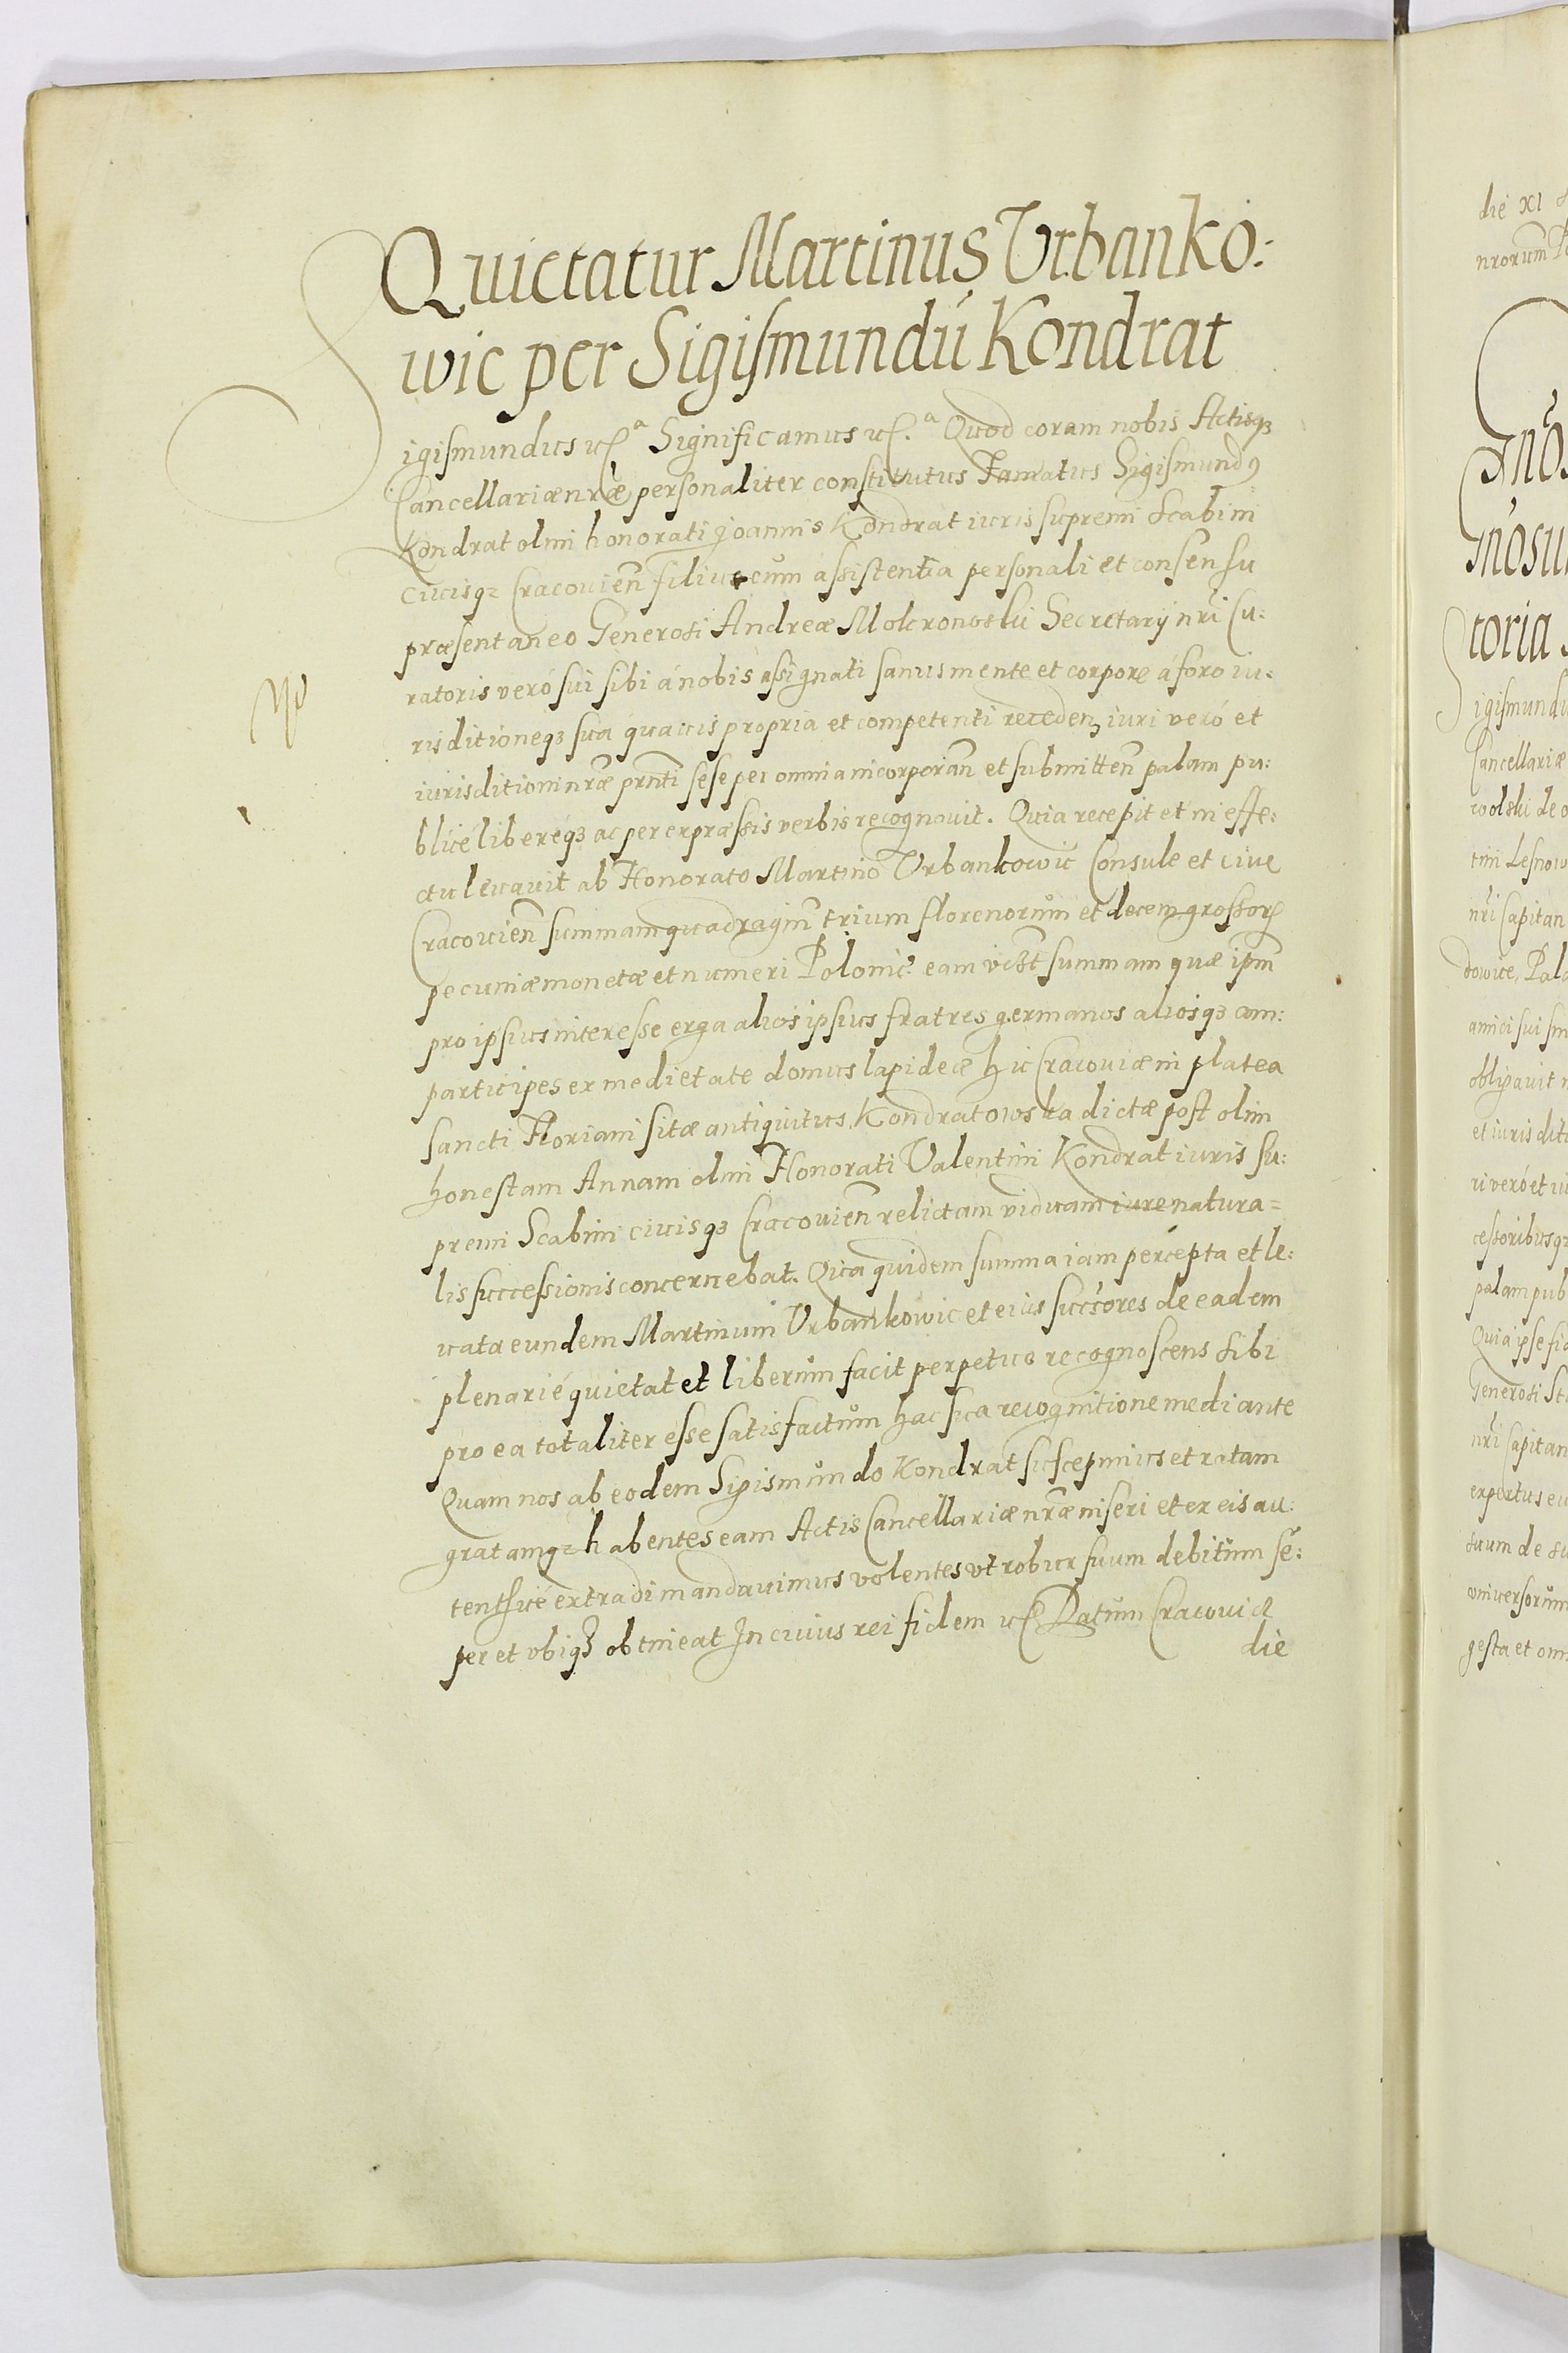 Quietatur Martinus Vrbanko:
wic per Sigiſmundú Kondrat
Sigiſmundus etc.ª Significamus etc.ª Quod coram nobis Actisqꝫ
Cancellariæ nr̃æ personaliter constitutus Famatus Sigiſmundꝯ
Kondrat olim honorati Joannis Kondrat iuris supremi Scabini
ciuisqꝫ Cracouień filius cum aſsistentia personali et consensu
præsentaneo Generosi Andreæ Mokronoski Secretarij nr̃i Cu:
ratoris veró sui sibi á nobis aſsignati sanus mente et corpore á foro iu:
risditioneqꝫ sua quauis propria et competenti recedeń iuri veró et
iurisditioni nr̃æ prn̄ti sese per omnia incorporań et submitteń palam pu:
blicé liberéqꝫ ac per expræſsis verbis recognouit. Quia recepit et in effe:
ctu leuauit ab Honorato Martino Vrbankowic Consule et ciue
Cracouień summam quadraginta trium florenorum et decem grossorꝝ
pecuniæ monetæ et numeri Polonic̃. eam vidzt summam quæ ipm̃
pro ipsius intereſse erga alios ipsius fratres germanos aliosqꝫ com:
participes ex medietate domus lapideæ hic Cracouiæ in platea
sancti Floriani sitæ antiquitus Kondratowska dictæ post olim
honestam Annam olim Honorati Valentini Kondrat iuris su:
premi Scabini ciuisqꝫ Cracouień relictam viduam iure natura=
lis succeſsionis concernebat. Qua quidem summa iam percepta et le:
uata eundem Martinum Vrbankowic et eius succ̃ores de eadem
plenarié quietat et liberum facit perpetuo recognoscens sibi
pro ea totaliter eſse satisfactum hac sua recognitione mediante
Quam nos ab eodem Sigismundo Kondrat suscepimus et ratam
gratamqꝫ habentes eam Actis Cancellariæ nr̃æ inseri et ex eis au:
tenticé extradi mandauimus volentes vt robur suum debitum sé:
per et vbiqꝫ obtineat In cuius rei fidem etc. Datum Cracouiæ
die
die XI
nrorum
Gño
toria
igiſmundu
Cancellariæ
wolski de
tini Lesnow
nr̃i Capitan
dowice, Pala
amici sui
obligauit
et iurisditi
ri veró et iu
ceſsoribusqꝫ
palam pub
Quia ipse
Generosi St
nr̃i Capitan
expertus
suum de su
vniuersorum
gesta et om